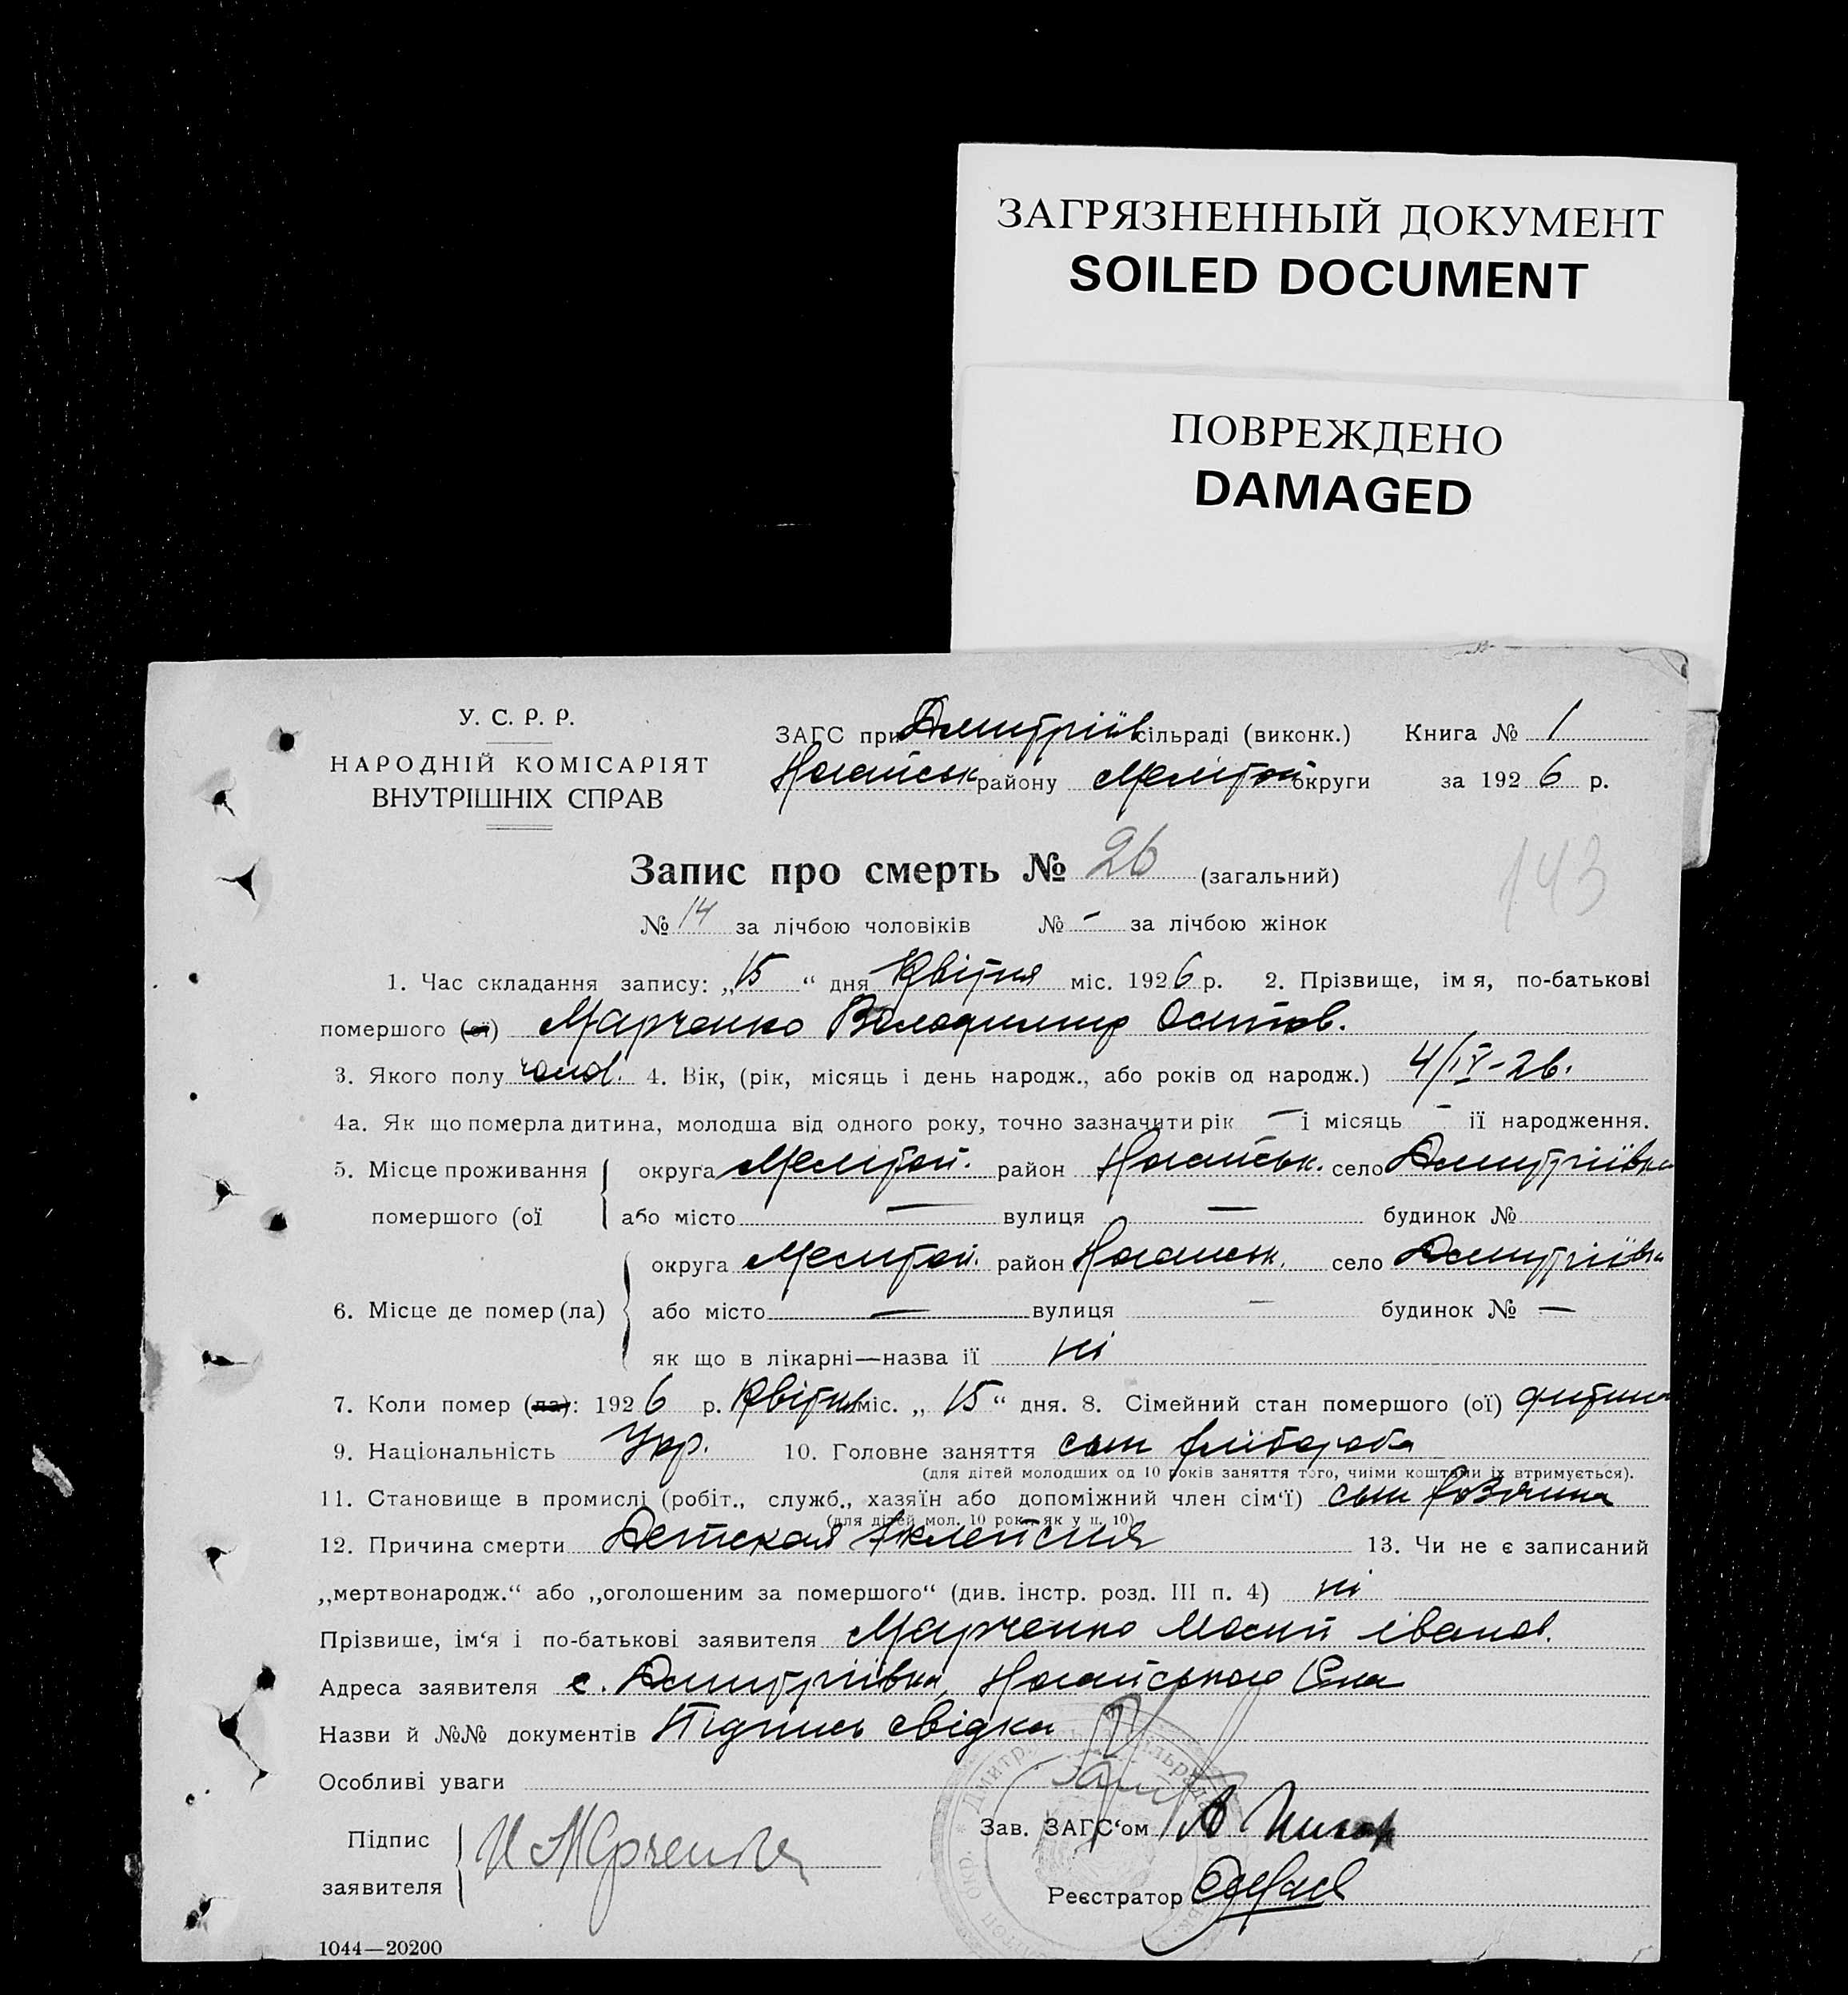 ЗАГРЯЗНЕННЫЙ ДОКУМЕНТ
SOILED DOCUMENT
ПОВРЕЖДЕНО
DAMAGED
У. С. Р. Р.
НАРОДНІЙ КОМІСАРІЯТ
ВНУТРІШНІХ СПРАВ
ЗАГС при Дмитріїв сільраді (виконк.) Книга № 1
Ногайськ району Меліtоп округи за 1926 р.
Запис про смерть № 26 (загальний)
143
№ 14 за лічбою чоловіків № - за лічбою жінок
1. Час складання запису: „15“ дня Квітня міс. 1926 р. 2. Прізвище, імя, по-батькові
помершого (ої) Марченко Володимир Осипов.
3. Якого полу чолов. 4. Вік, (рік, місяць і день народж., або років од народж.) 4/IV-26.
4а. Як що померла дитина, молодша від одного року, точно зазначити рік — і місяць - ії народження.
5. Місце проживання округа Меліtоп. район Ногайськ. село Дмитріївка
помершого (ої або місто — вулиця — будинок №
округа Меліtоп. район Ногайськ. село Дмитріївка
6. Місце де помер (ла) або місто — вулиця — будинок № —
як що в лікарні—назва ії ні
7. Коли помер (ла): 1926 р. Квітня міс. „15“ дня. 8. Сімейний стан помершого (ої) дитина
9. Національність Укр. 10. Головне заняття сын хлібороба
(для дітей молодших од 10 років заняття того, чиіми коштами їх втримується).
11. Становище в промислі (робіт., служб., хазяїн або допоміжний член сім‘ї) сын хозяина
(для дітей мол. 10 рок., як у п. 10)
12. Причина смерти Детская Эклепсия 13. Чи не є записаний
„мертвонародж.“ або „оголошеним за помершого“ (див. інстр. розд. III п. 4) ні
Прізвише, ім‘я і по-батькові заявителя Марченко Іванов.
Адреса заявителя с. Дмитріївка, Ногайського
Назви й №№ документів Підпись свідка
Особливі уваги
Підпис
заявителя Марченко
Зав. ЗАГС‘ом
Реєстратор
1044—20200